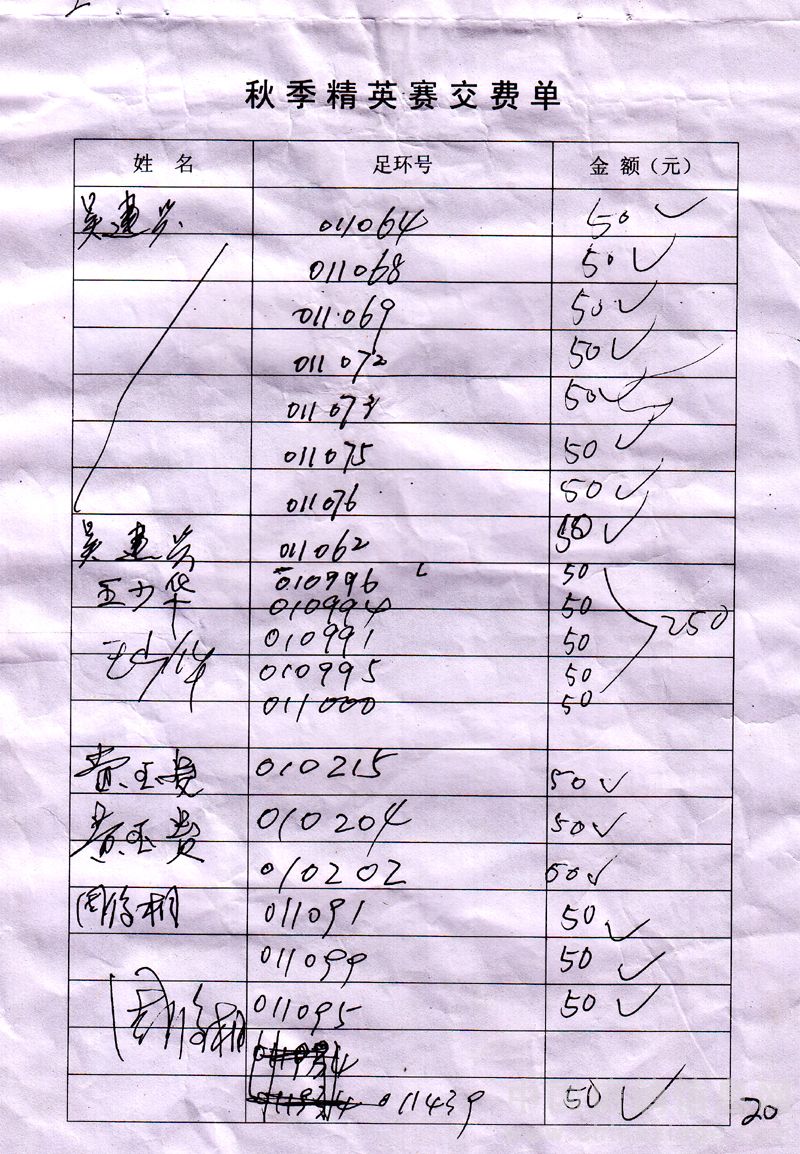 秋季精英赛交费单
姓 名 足环号 金 额（元）
吴建兴 011064 50
011068 50
011069 50
011072 50
011073 50
011075 50
011076 50
吴建兴 011062 50
王少华 010996 50
010994 50
王少华 010991 50 250
010995 50
011000 50
费玉 010215 50
费玉 010204 50
010202 50
周 相 011091 50
011099 50
周 相 011095 50
011439 50
20